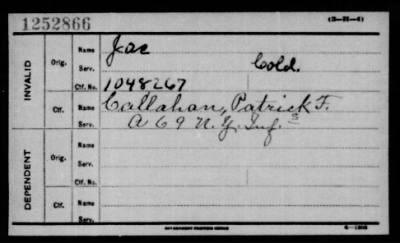 1252866
(3-H-4)
INVALID
Orig.
Name
Serv.
Cold.
Ctf. No. 1048267
Ctf.
Name Callahan, Patrick F.
Serv. A 69 N.Y. Inf.
DEPENDENT
Orig.
Name
Serv.
Ctf. No.
Ctf.
Name
Serv.